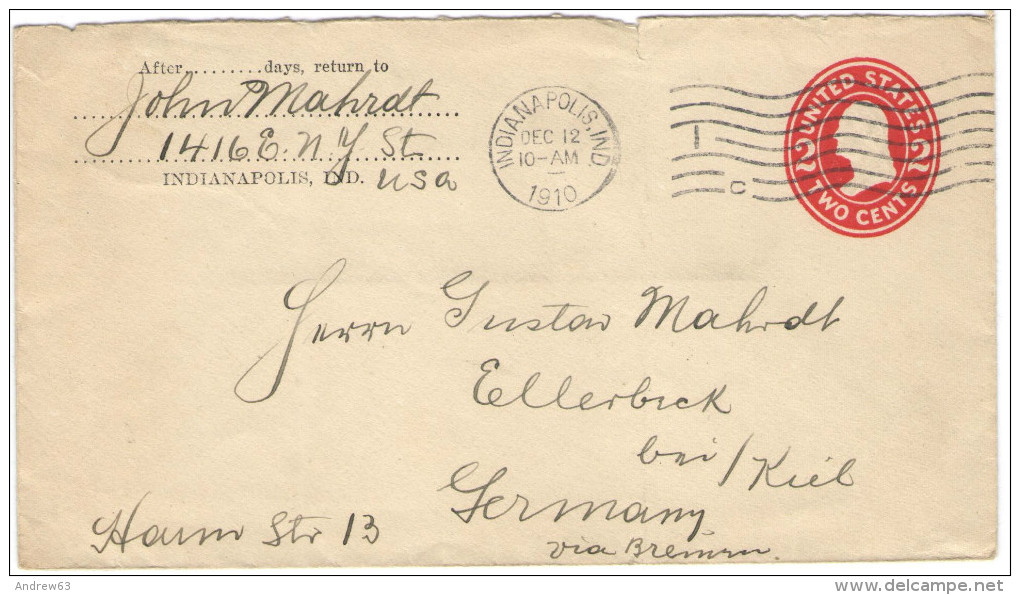 After........days, return to
John Mahrdt
1416 E. N Y St.
INDIANAPOLIS, IND. USA
INDIANAPOLIS, IND.
DEC 12
10-AM
1910
1
C
UNITED STATES
2 2
TWO CENTS
Herrn Gustav Mahrdt
Ellerbeck
bei / Kiel
Germany
via Bremen.
Str 13
Andrew63
delcampe.net